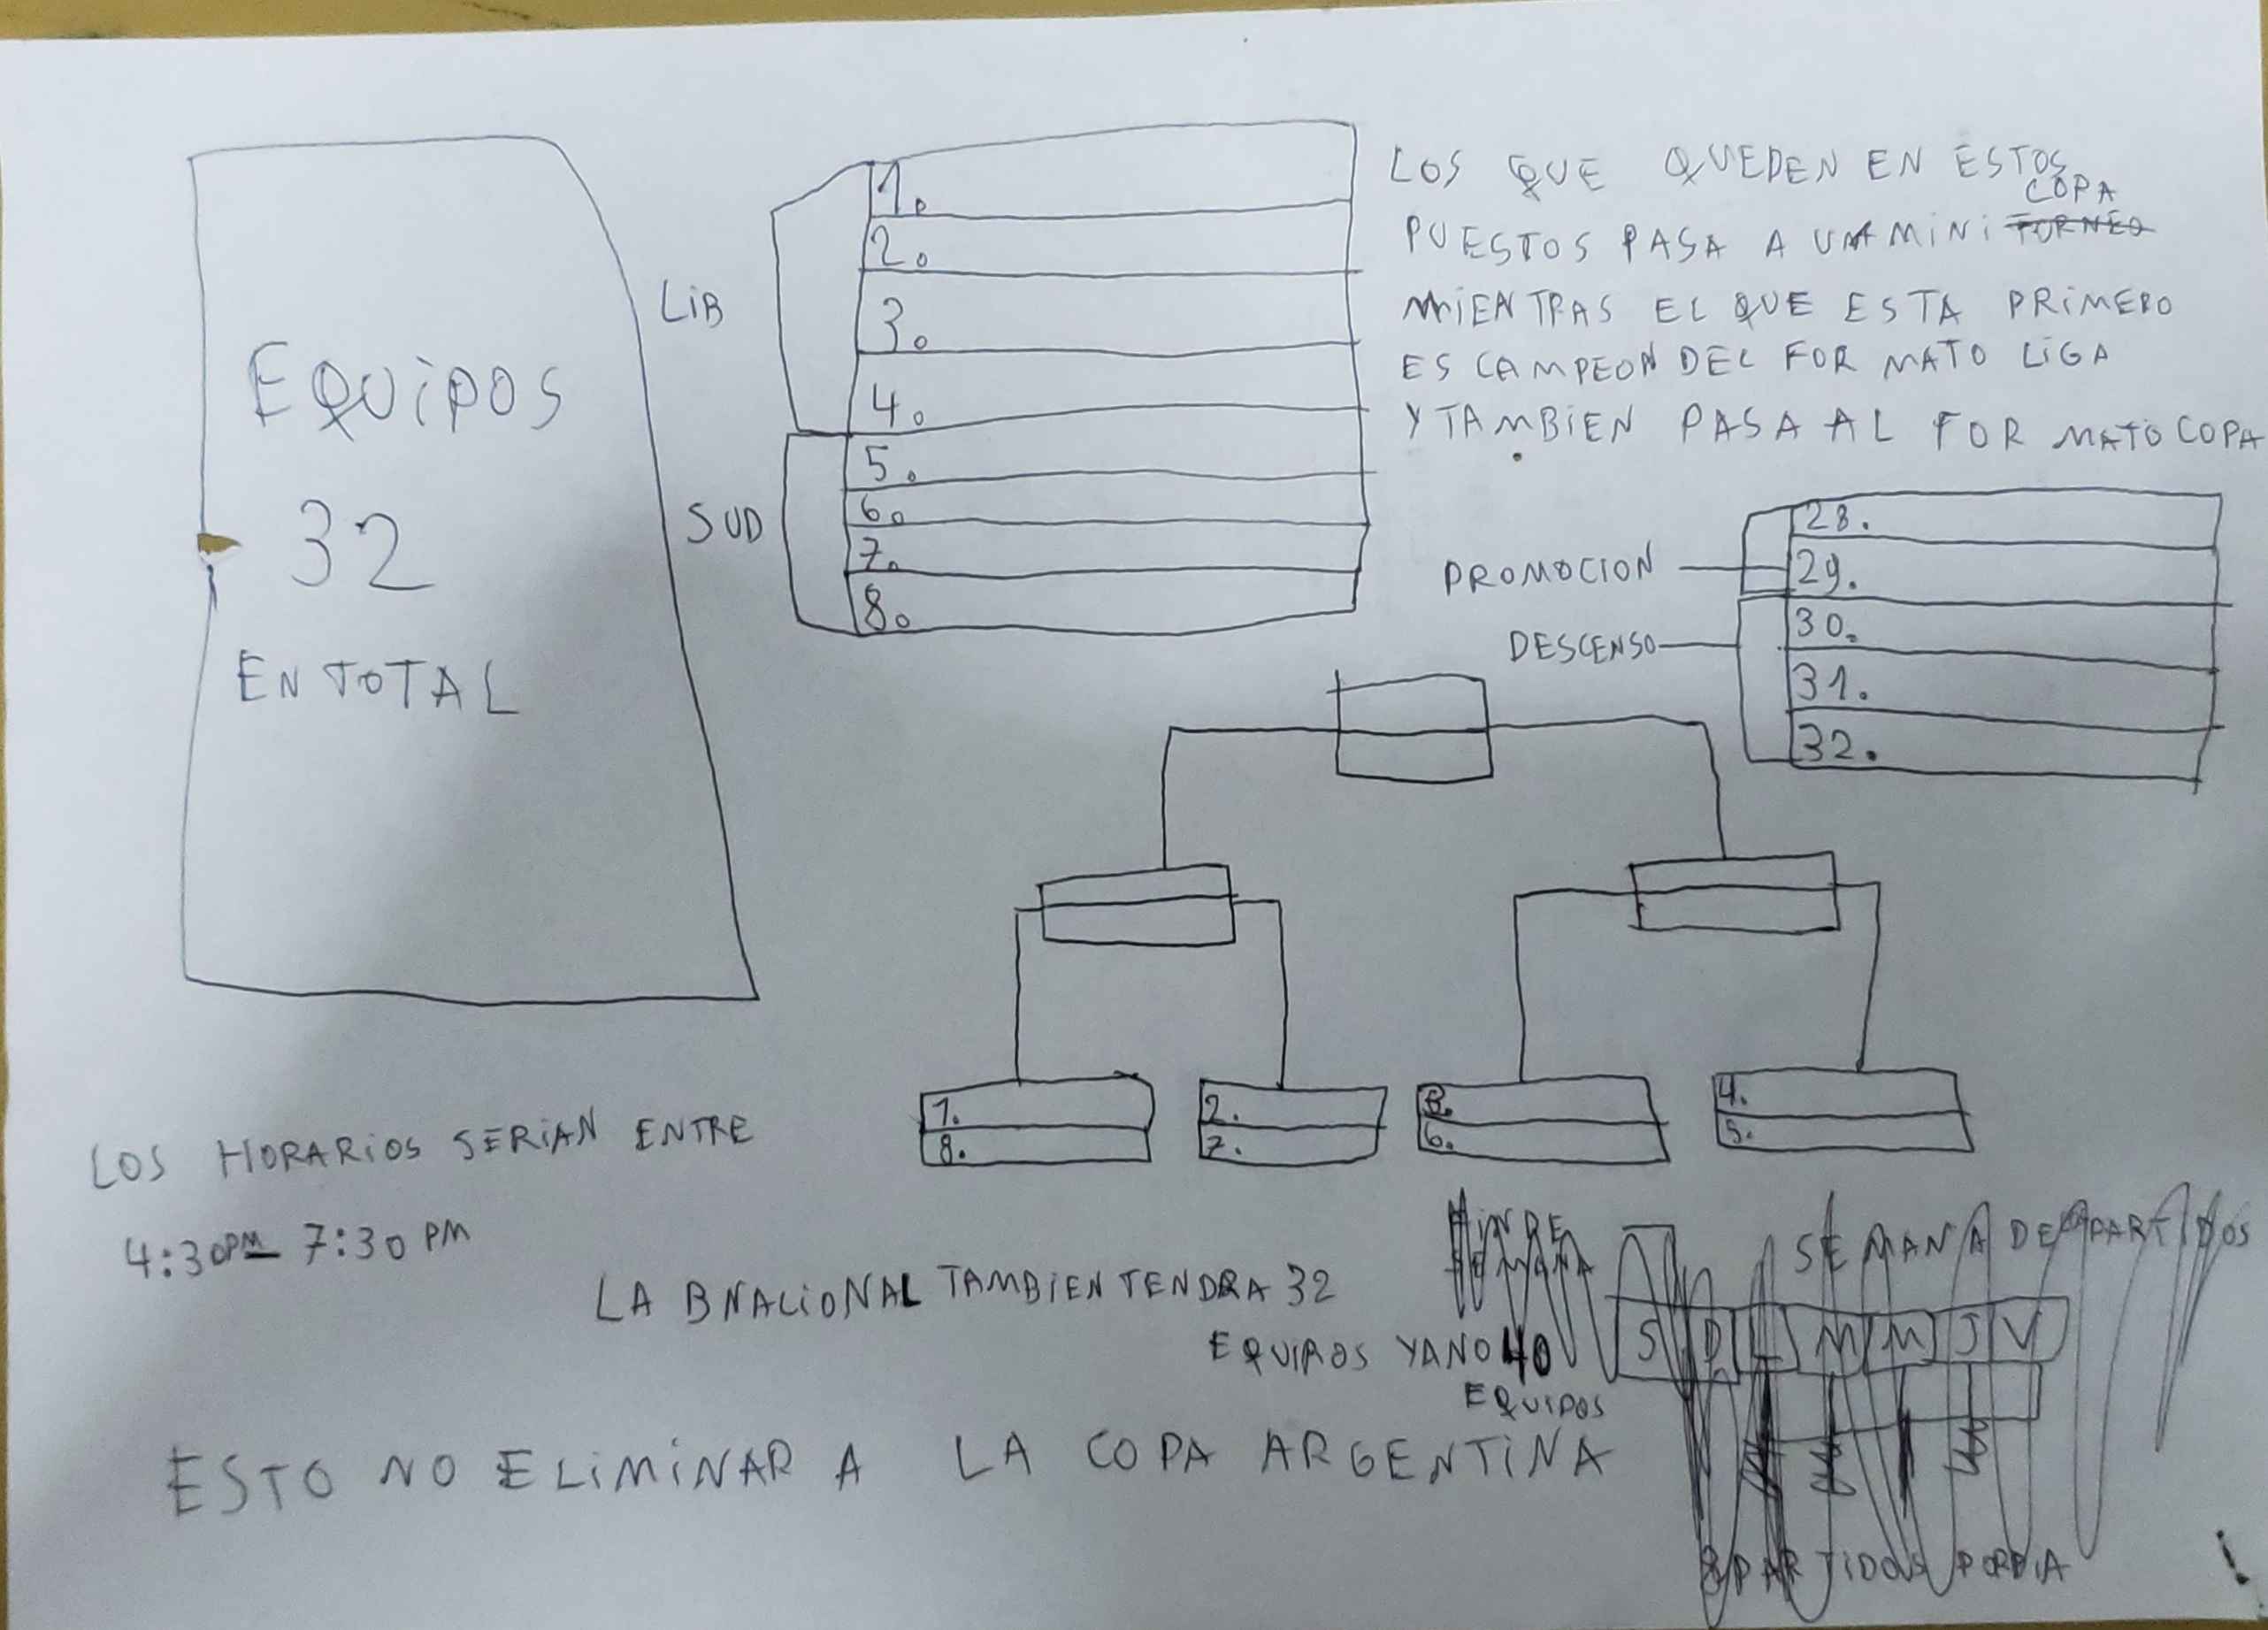 EQUIPOS
32
EN TOTAL
LIB
1.
2.
3.
4.
SUD
5.
6.
7.
8.
LOS QUE QUEDEN EN ESTOS
COPA
PUESTOS PASA A UNA MINI TORNEO
MIENTRAS EL QUE ESTA PRIMERO
ES CAMPEON DEL FORMATO LIGA
Y TAMBIEN PASA AL FORMATO COPA
PROMOCION
28.
29.
DESCENSO
30.
31.
32.
1.
8.
2.
7.
3.
6.
4.
5.
LOS HORARIOS SERIAN ENTRE
4:30PM - 7:30 PM
LA BNACIONAL TAMBIEN TENDRA 32
EQUIPOS YA NO 40
EQUIPOS
SEMANA DE PARTIDOS
S D L M M J V
8 PARTIDOS POR DIA
ESTO NO ELIMINAR A LA COPA ARGENTINA